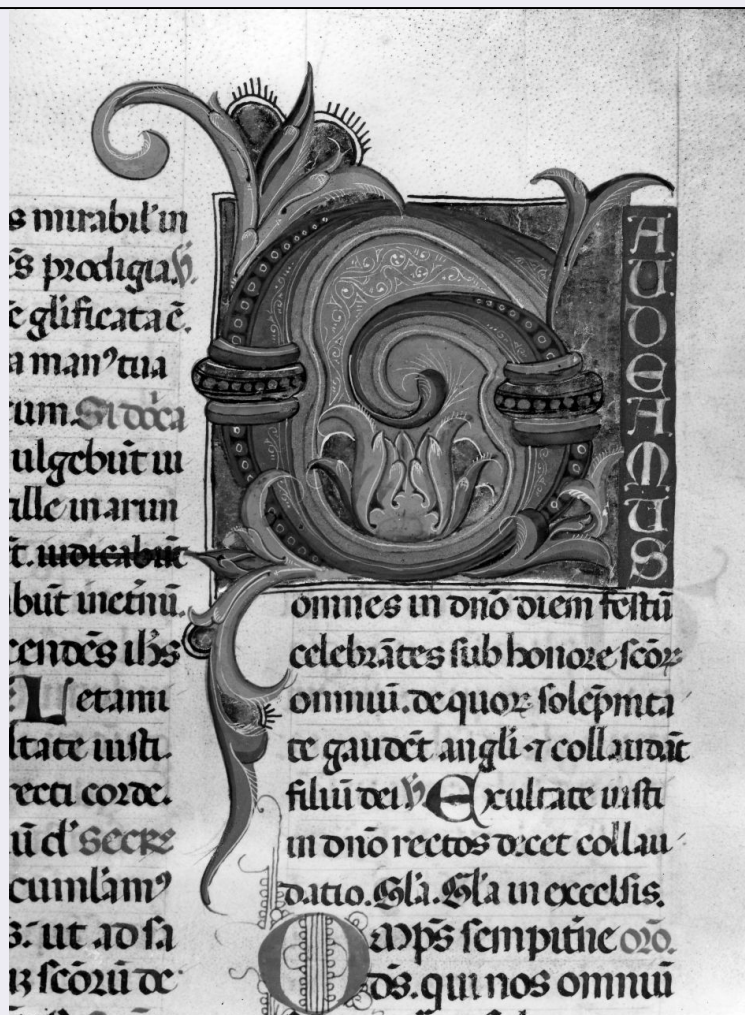 s mirabil' in
ẽs prodigia. ℣.
e gl̃ificata ẽ.
a man᾿ tua
cum. Si dõca
ulgebũt iu
ille in arun
t. iudicabũt
bũt inet̃nũ.
cendẽs ih̃s
Letami
ltate iusti.
recti corde.
ũ d' Secre
cumlam᾿
ut ad sa
scõrũ de
GAUDEAMUS
omnes in dño diem festũ
celebrãtes sub honore scõꝝ
omniũ. de quoꝝ solẽpnita
te gaudẽt angli ⁊ collaudãt
filiũ dei ℣ Exultate iusti
in dño rectos decet collau
datio. Gl̃a. Gl̃a in excelsis.
Omp̃s sempit̃ne orõ.
ds̃. qui nos omniũ